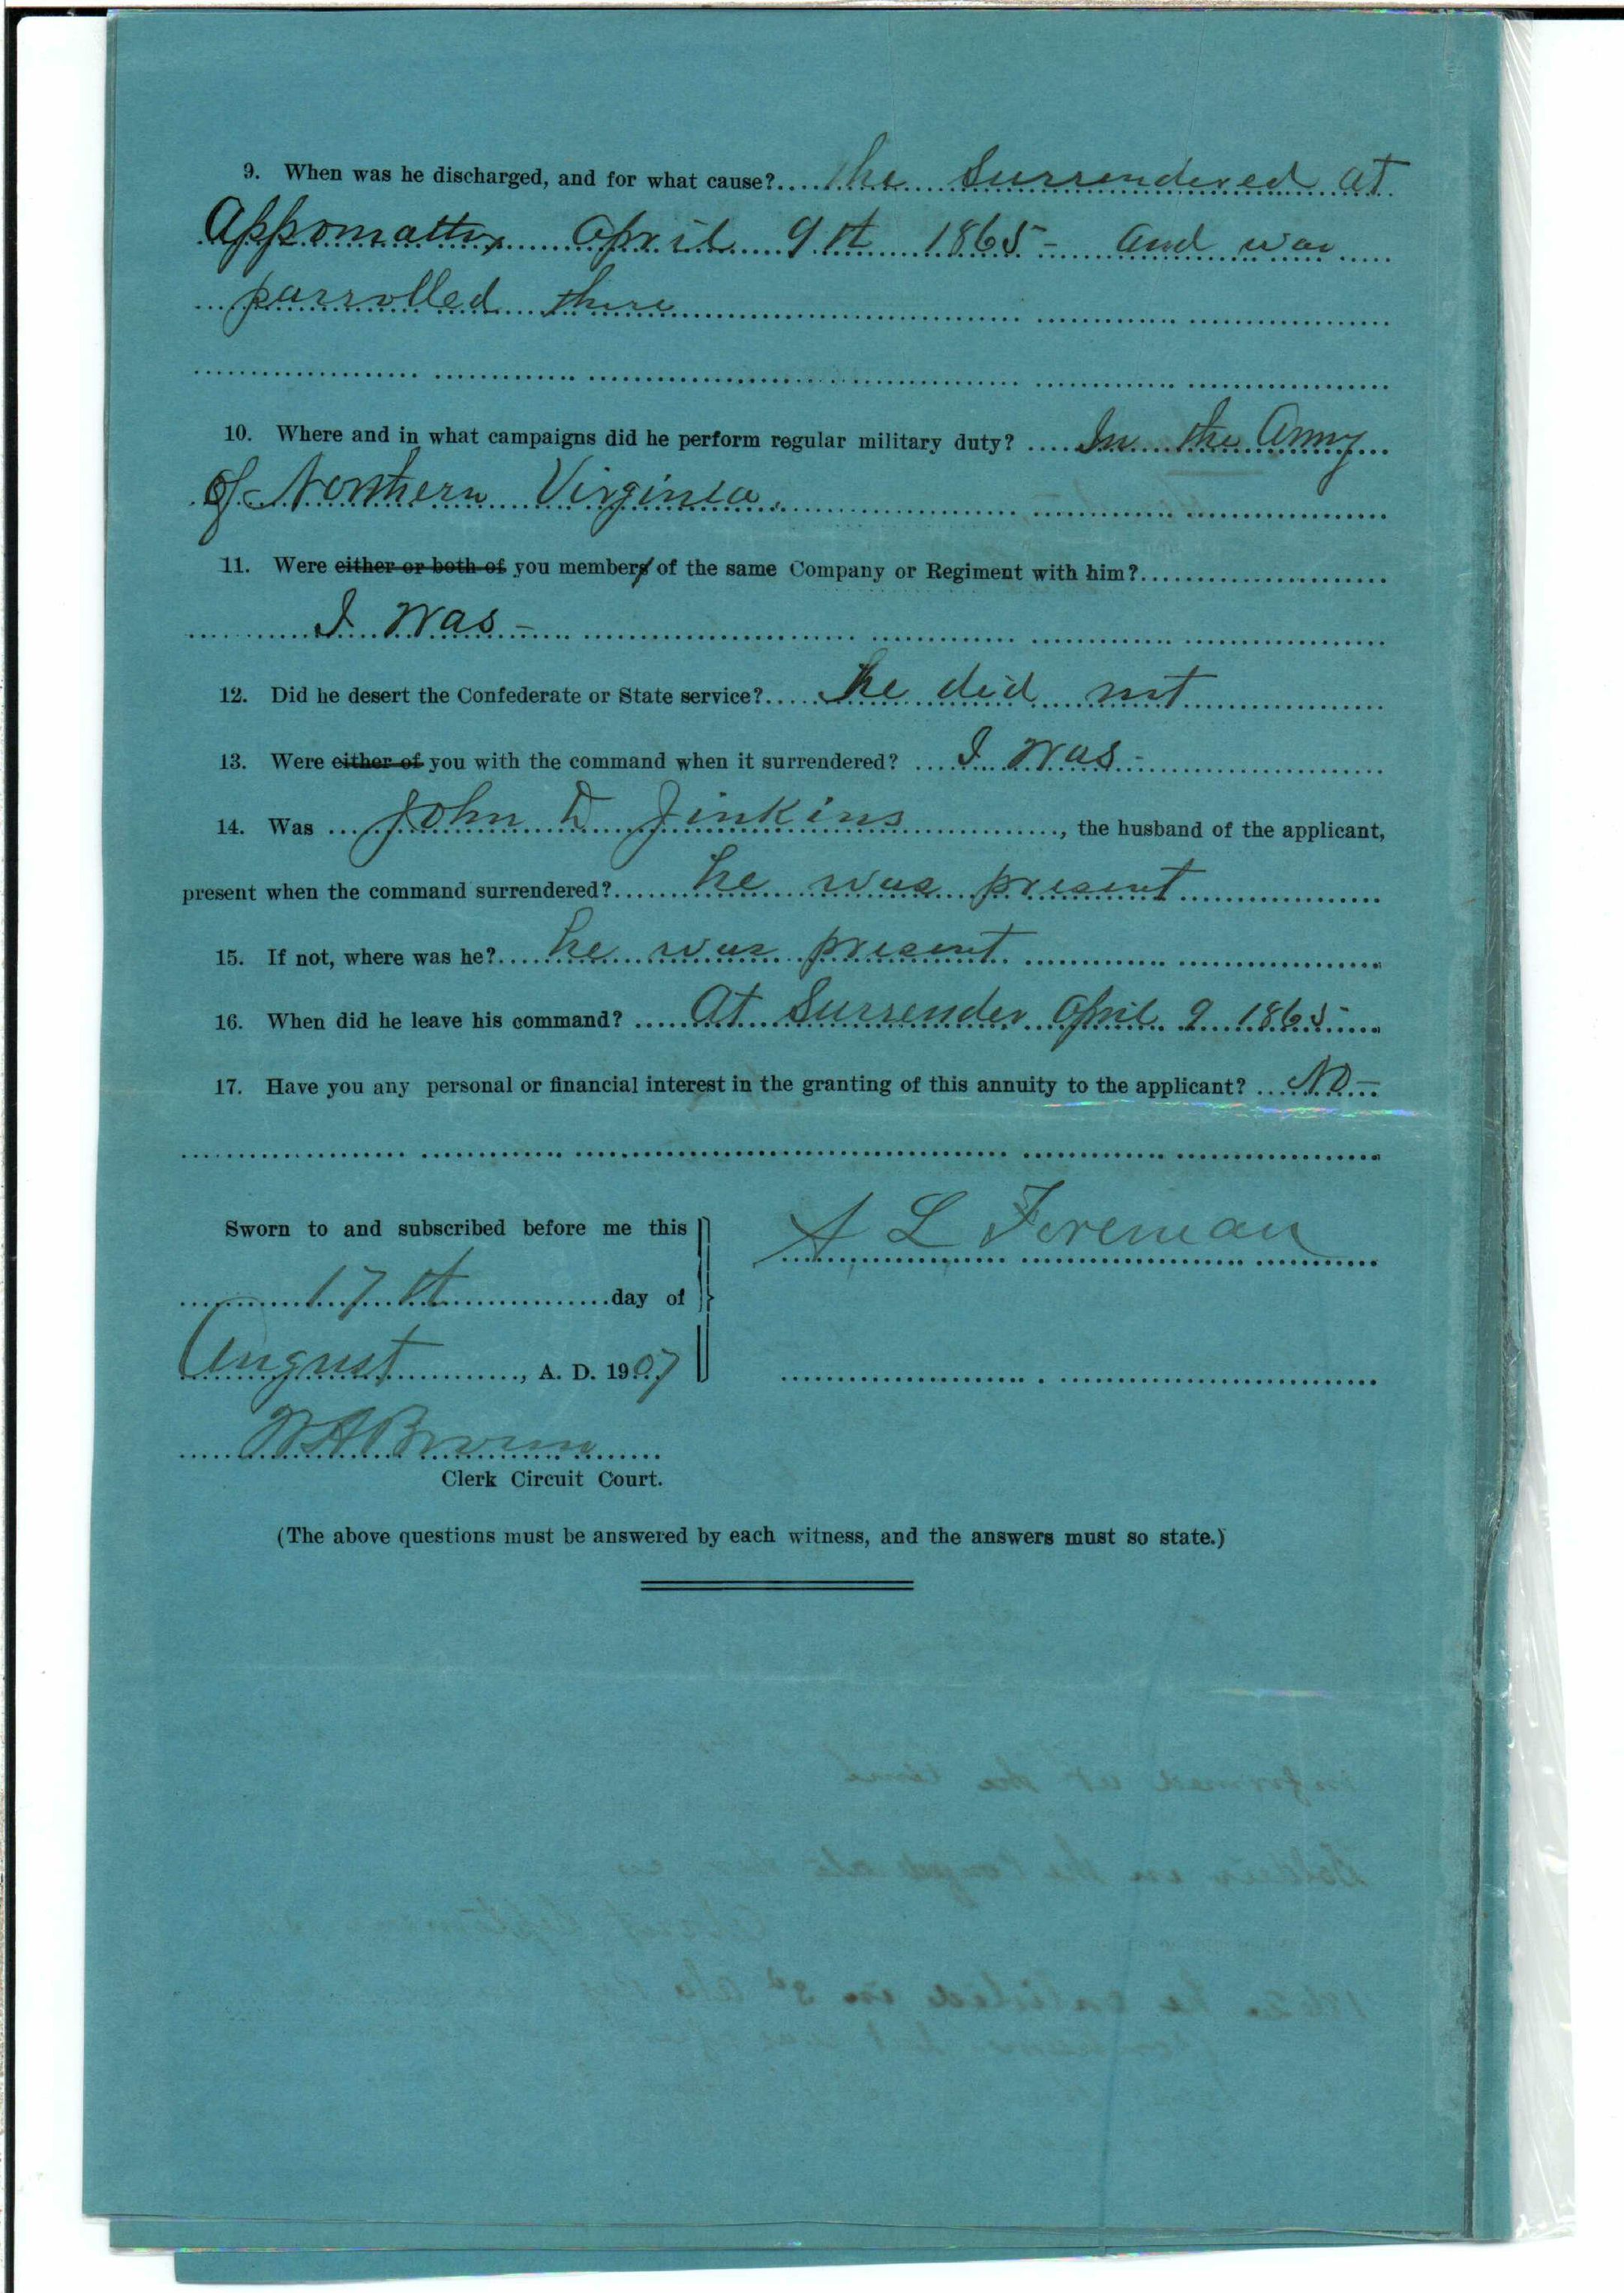 9. When was he discharged, and for what cause?....he surrendered at
Appomattox April 9th 1865- and was
parrolled there
10. Where and in what campaigns did he perform regular military duty? ....In the Army
of Northern Virginia.
11. Were either or both of you members of the same Company or Regiment with him?
I was -
12. Did he desert the Confederate or State service?....he did not
13. Were either of you with the command when it surrendered? ....I was -
14. Was ....John D Jinkins...., the husband of the applicant,
present when the command surrendered?....he was present
15. If not, where was he?....he was present
16. When did he leave his command? ....At Surrender April 9 1865
17. Have you any personal or financial interest in the granting of this annuity to the applicant? ...No-
Sworn to and subscribed before me this
17th day of
August, A. D. 1907
A L Foreman
W A Brown
Clerk Circuit Court.
(The above questions must be answered by each witness, and the answers must so state.)